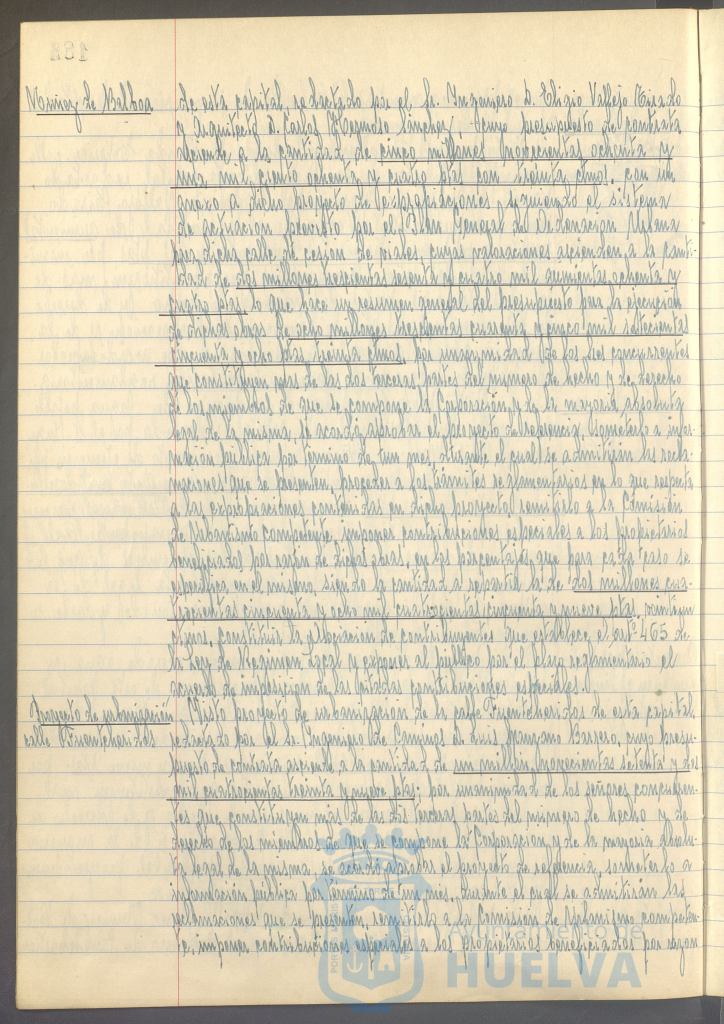 Nuñez de Balboa
de esta capital, redactado por el Sr. Ingeniero D. Eligio Vallejo Tirado
y Arquitecto D. Carlos Hermoso Sánchez, cuyo presupuesto de contrata
asciende a la cantidad de cinco millones novecientas ochenta y
una mil ciento ochenta y cuatro ptas con treinta ctmos. con un
anexo a dicho proyecto de expropiaciones siguiendo el sistema
de actuación previsto por el Plan General de Ordenación Urbana
para dicha calle de cesion de viales, cuyas valoraciones ascienden a la canti-
dad de dos millones trescientas sesenta y cuatro mil quinientas ochenta y
cuatro ptas lo que hace un resumen general del presupuesto para la ejecución
de dichas obras de ocho millones trescientas cuarenta y cinco mil setecientas
cincuenta y ocho ptas treinta ctmos, por unanimidad de los Sres concurrentes
que constituyen mas de las dos terceras partes del numero de hecho y de derecho
de los miembros de que se compone la Corporación, y de la mayoria absoluta
legal de la misma, se acordó aprobar el proyecto de referencia, someterlo a infor-
mación pública por término de un mes, durante el cual se admitirán las recla-
maciones que se presenten, proceder a los trámites reglamentarios en lo que respecta
a las expropiaciones contenidas en dicho proyecto, remitirlo a la Comisión
de Urbanismo competente, imponer contribuciones especiales a los propietarios
beneficiados por razón de dichas obras, en los porcentajes, que para cada caso se
especifica en el mismo, siendo la cantidad a repartir la de dos millones cua-
trocientas cincuenta y ocho mil cuatrocientas cincuenta y nueve ptas,
ctmos, constituir la Asociación de contribuyentes que establece el artº 465 de
la Ley de Régimen Local y exponer al público por el plazo reglamentario el
acuerdo de imposicion de las citadas contribuciones especiales.
Proyecto de urbanización
calle Fuenteheridos
Visto proyecto de urbanización de la calle Fuenteheridos de esta capital,
redactado por el Sr. Ingeniero de Caminos D. Luis Manzano Barrero, cuyo presu-
puesto de contrata asciende a la cantidad de un millón, novecientas setenta y dos
mil cuatrocientas treinta y nueve ptas; por unanimidad de los señores concurren-
tes que constituyen más de las dos terceras partes del número de hecho y de
derecho de los miembros de que se compone la Corporación, y de la mayoria absolu-
ta legal de la misma, se acordó aprobar el proyecto de referencia, someterlo a
información pública por término de un mes, durante el cual se admitirán las
reclamaciones que se presenten, remitirlo a la Comisión de Urbanismo competen-
te, imponer contribuciones especiales a los propietarios beneficiados por razon
Ayuntamiento de
HUELVA